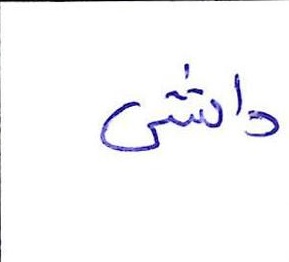 دانش